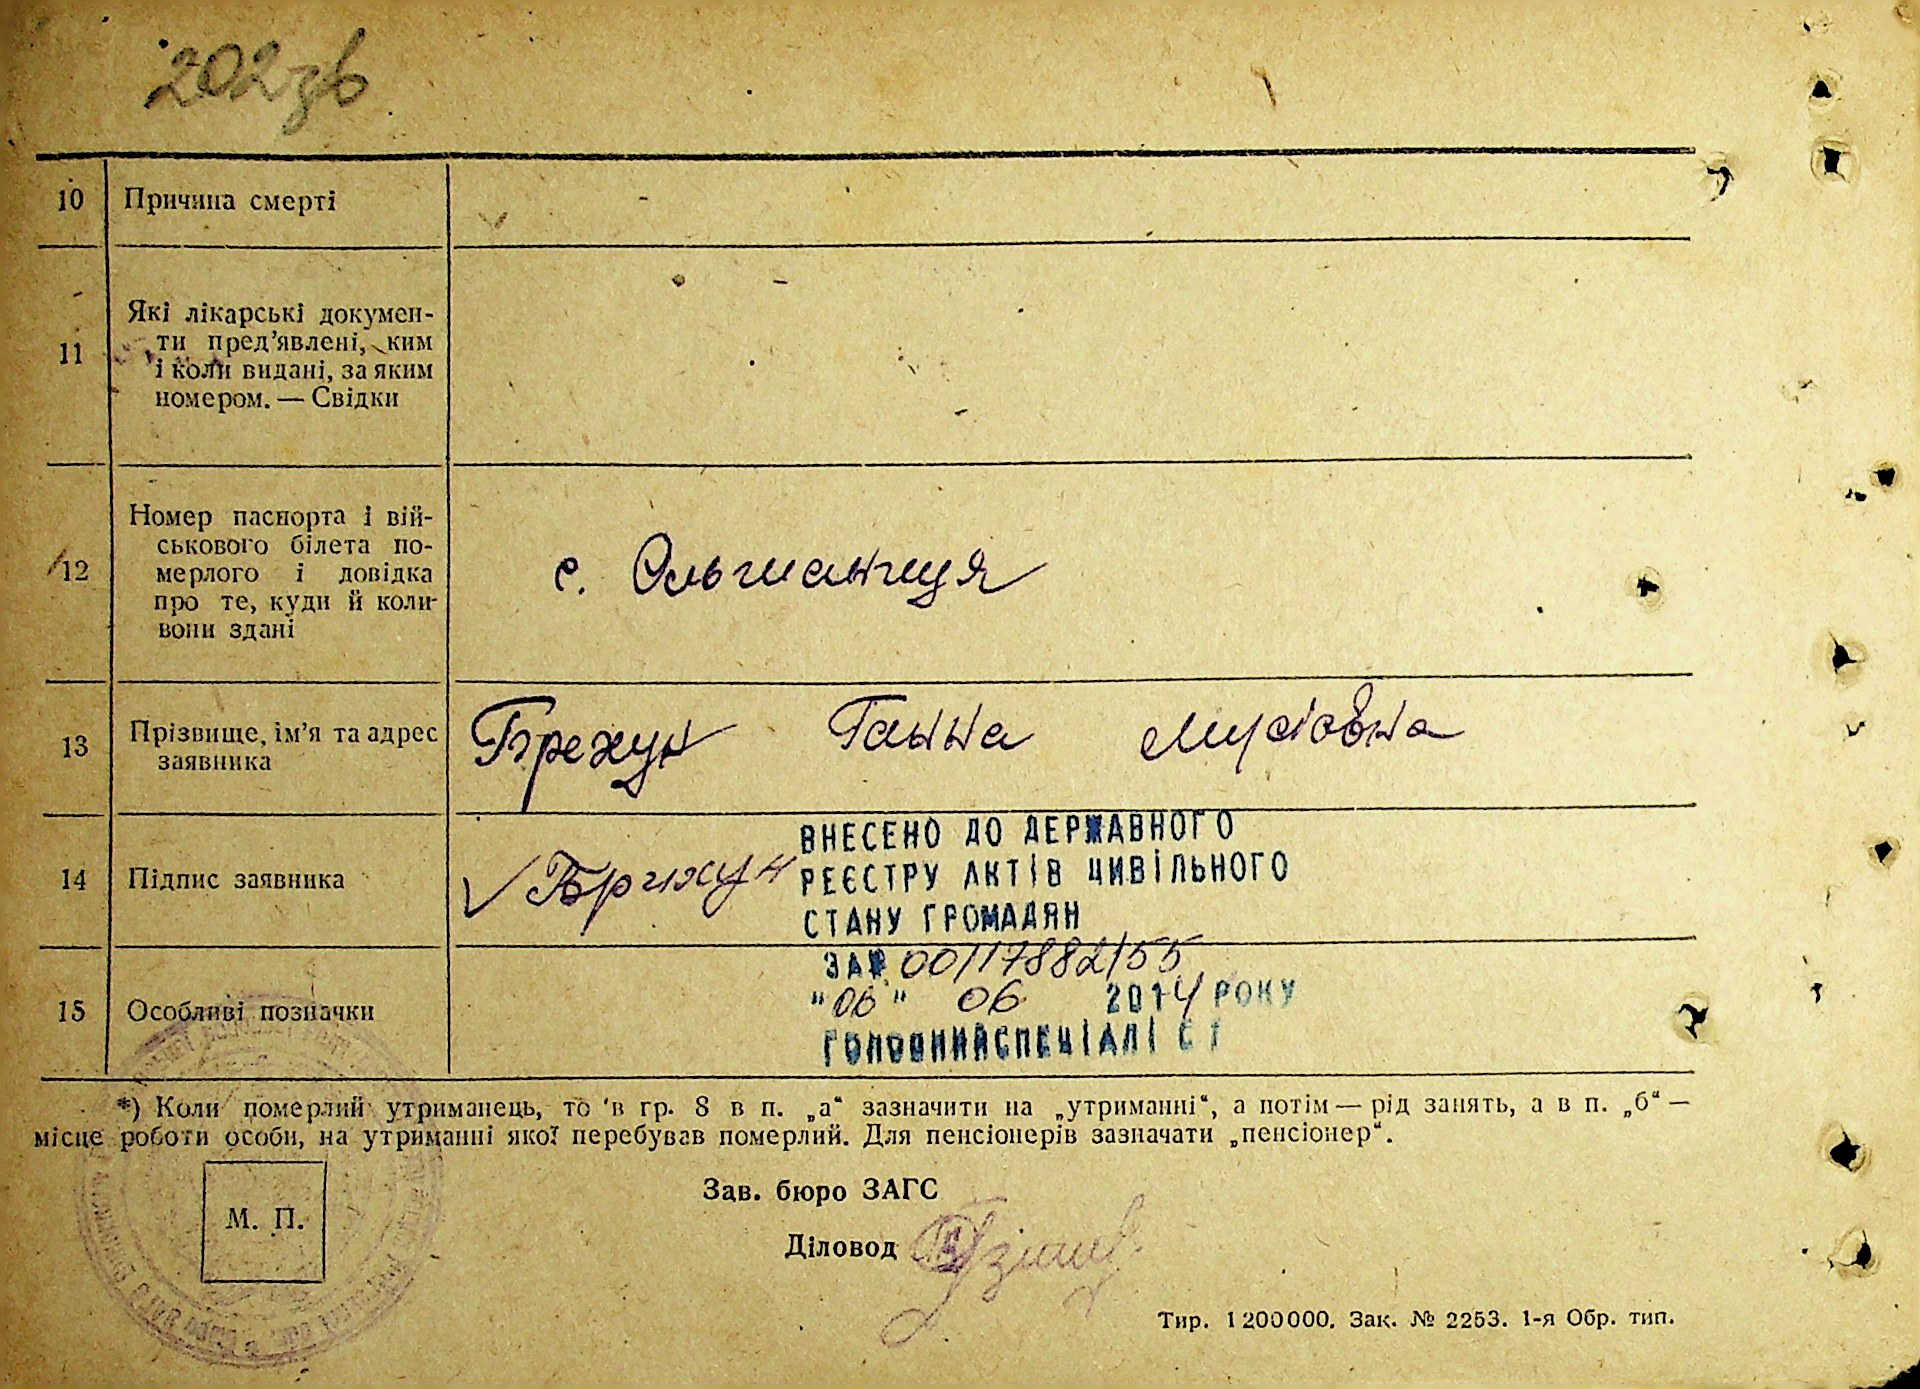 202зв
10 Причина смерті
11 Які лікарські докумен-
ти пред’явлені, ким
і коли видані, за яким
номером. — Свідки
12 Номер паспорта і вій-
ськового білета по-
мерлого і довідка
про те, куди й коли
вони здані
с. Ольшаниця
13 Прізвище, ім’я та адрес
заявника
Брехун Ганна Мусіовна
14 Підпис заявника
Брихун
ВНЕСЕНО ДО ДЕРЖАВНОГО
РЕЄСТРУ АКТІВ ЦИВІЛЬНОГО
СТАНУ ГРОМАДЯН
ЗА№ 00117882155
"06" 06 2014 РОКУ
ГОЛОВНИЙ СПЕЦІАЛІСТ
15 Особливі позначки
*) Коли померлий утриманець, то в гр. 8 в п. „а“ зазначити на „утриманні“, а потім — рід занять, а в п. „б“ —
місце роботи особи, на утриманні якої перебував померлий. Для пенсіонерів зазначати „пенсіонер“.
М. П.
Зав. бюро ЗАГС
Діловод
Тир. 1 200 000. Зак. № 2253. 1-я Обр. тип.